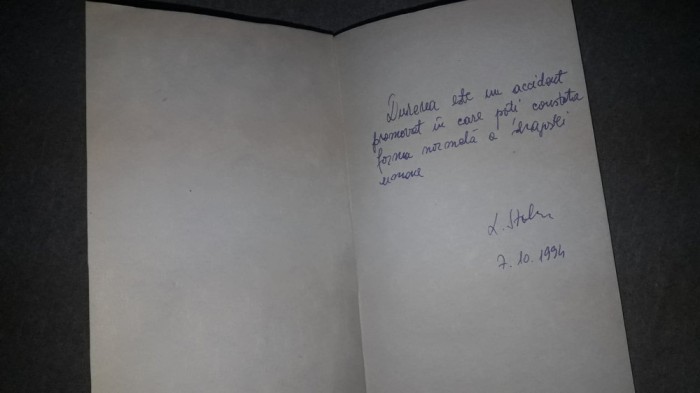 Durerea este un accident
promovat în care poți constata
forma normală a
umane
L. Stoln
7.10.1994